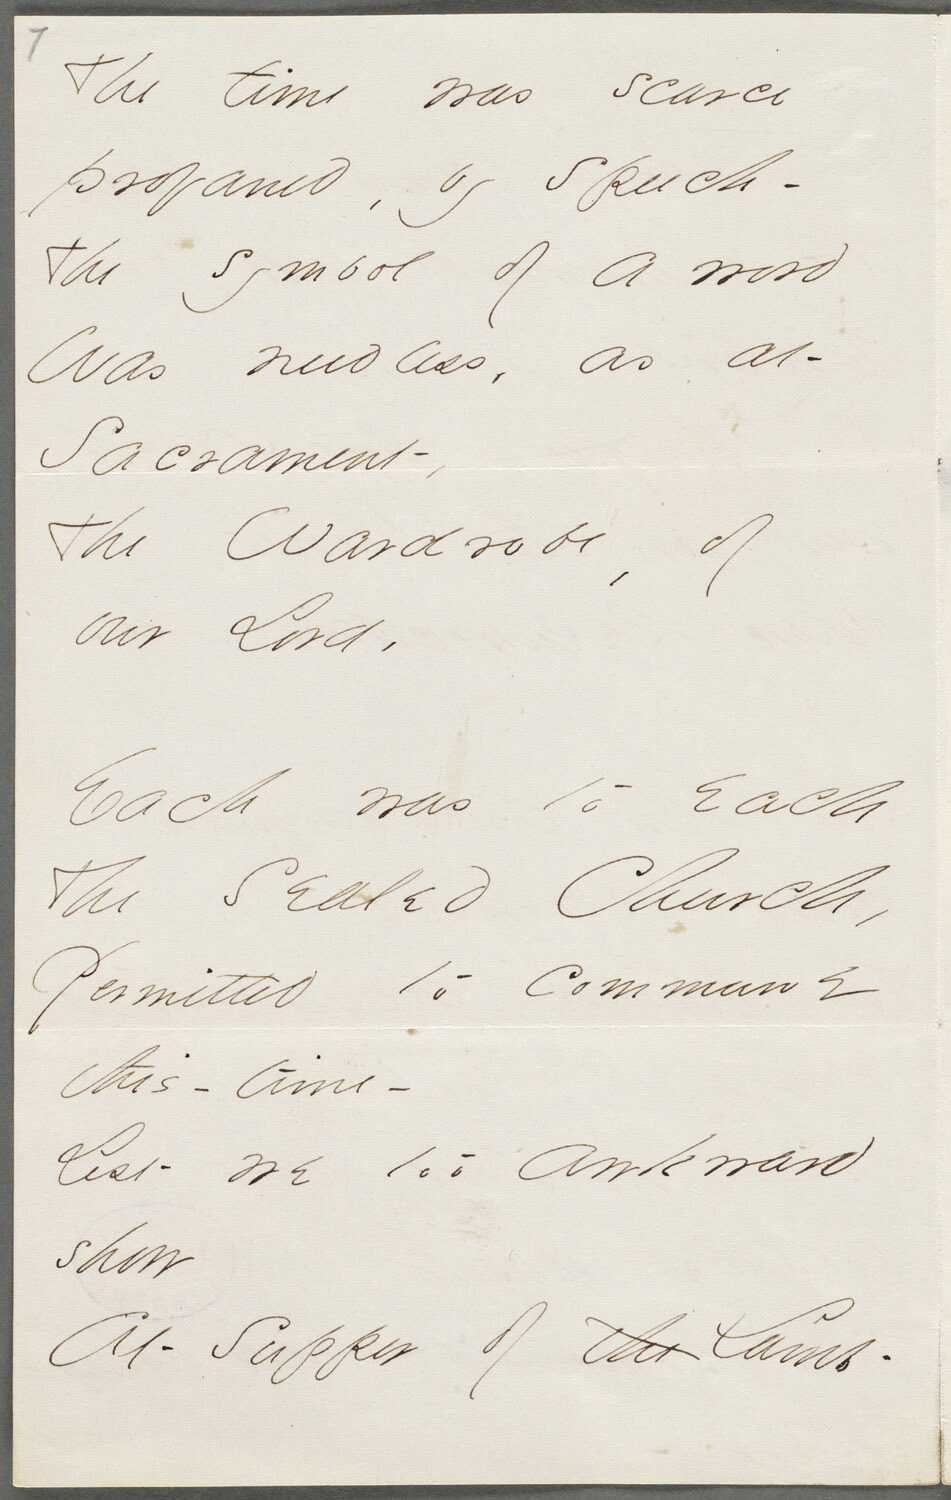 7
The time was scarce
profaned, by speech -
The symbol of a word
Was needless, as at
Sacrament,
The Wardrobe, of
our Lord.
Each was to each
The sealed Church,
Permitted to commune
this - time -
Lest we too awkward
show
At Supper of the Lamb.